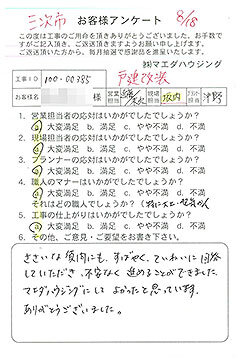 三次市 お客様アンケート 8/18
この度は工事のご用命を頂きありがとうございました。お手数で
すがご記入頂き、ご返送頂きますようお願い申し上げます。
ご返送頂いた方から、毎月抽選で感謝品を進呈いたします。
㈱マエダハウジング
工事ID 100-00385 戸建改装
お客様名 様 営業担当 現場担当 坂内
1. 営業担当者の応対はいかがでしたでしょうか?
a. 大変満足 b. 満足 c. やや不満 d. 不満
2. 現場担当者の応対はいかがでしたでしょうか?
a. 大変満足 b. 満足 c. やや不満 d. 不満
3. プランナーの応対はいかがでしたでしょうか?
a. 大変満足 b. 満足 c. やや不満 d. 不満
4. 職人のマナーはいかがでしたでしょうか?
a. 大変満足 b. 満足 c. やや不満 d. 不満
それはどの職人でしょうか?
5. 工事の仕上がりはいかがでしたでしょうか?
a. 大変満足 b. 満足 c. やや不満 d. 不満
6. その他、ご意見・ご要望をお書き下さい。
ささいな質問にも、すばやく、ていねいに回答
していただき、不安なく進めることができました。
マエダハウジングにしてよかったと思っています。
ありがとうございました。